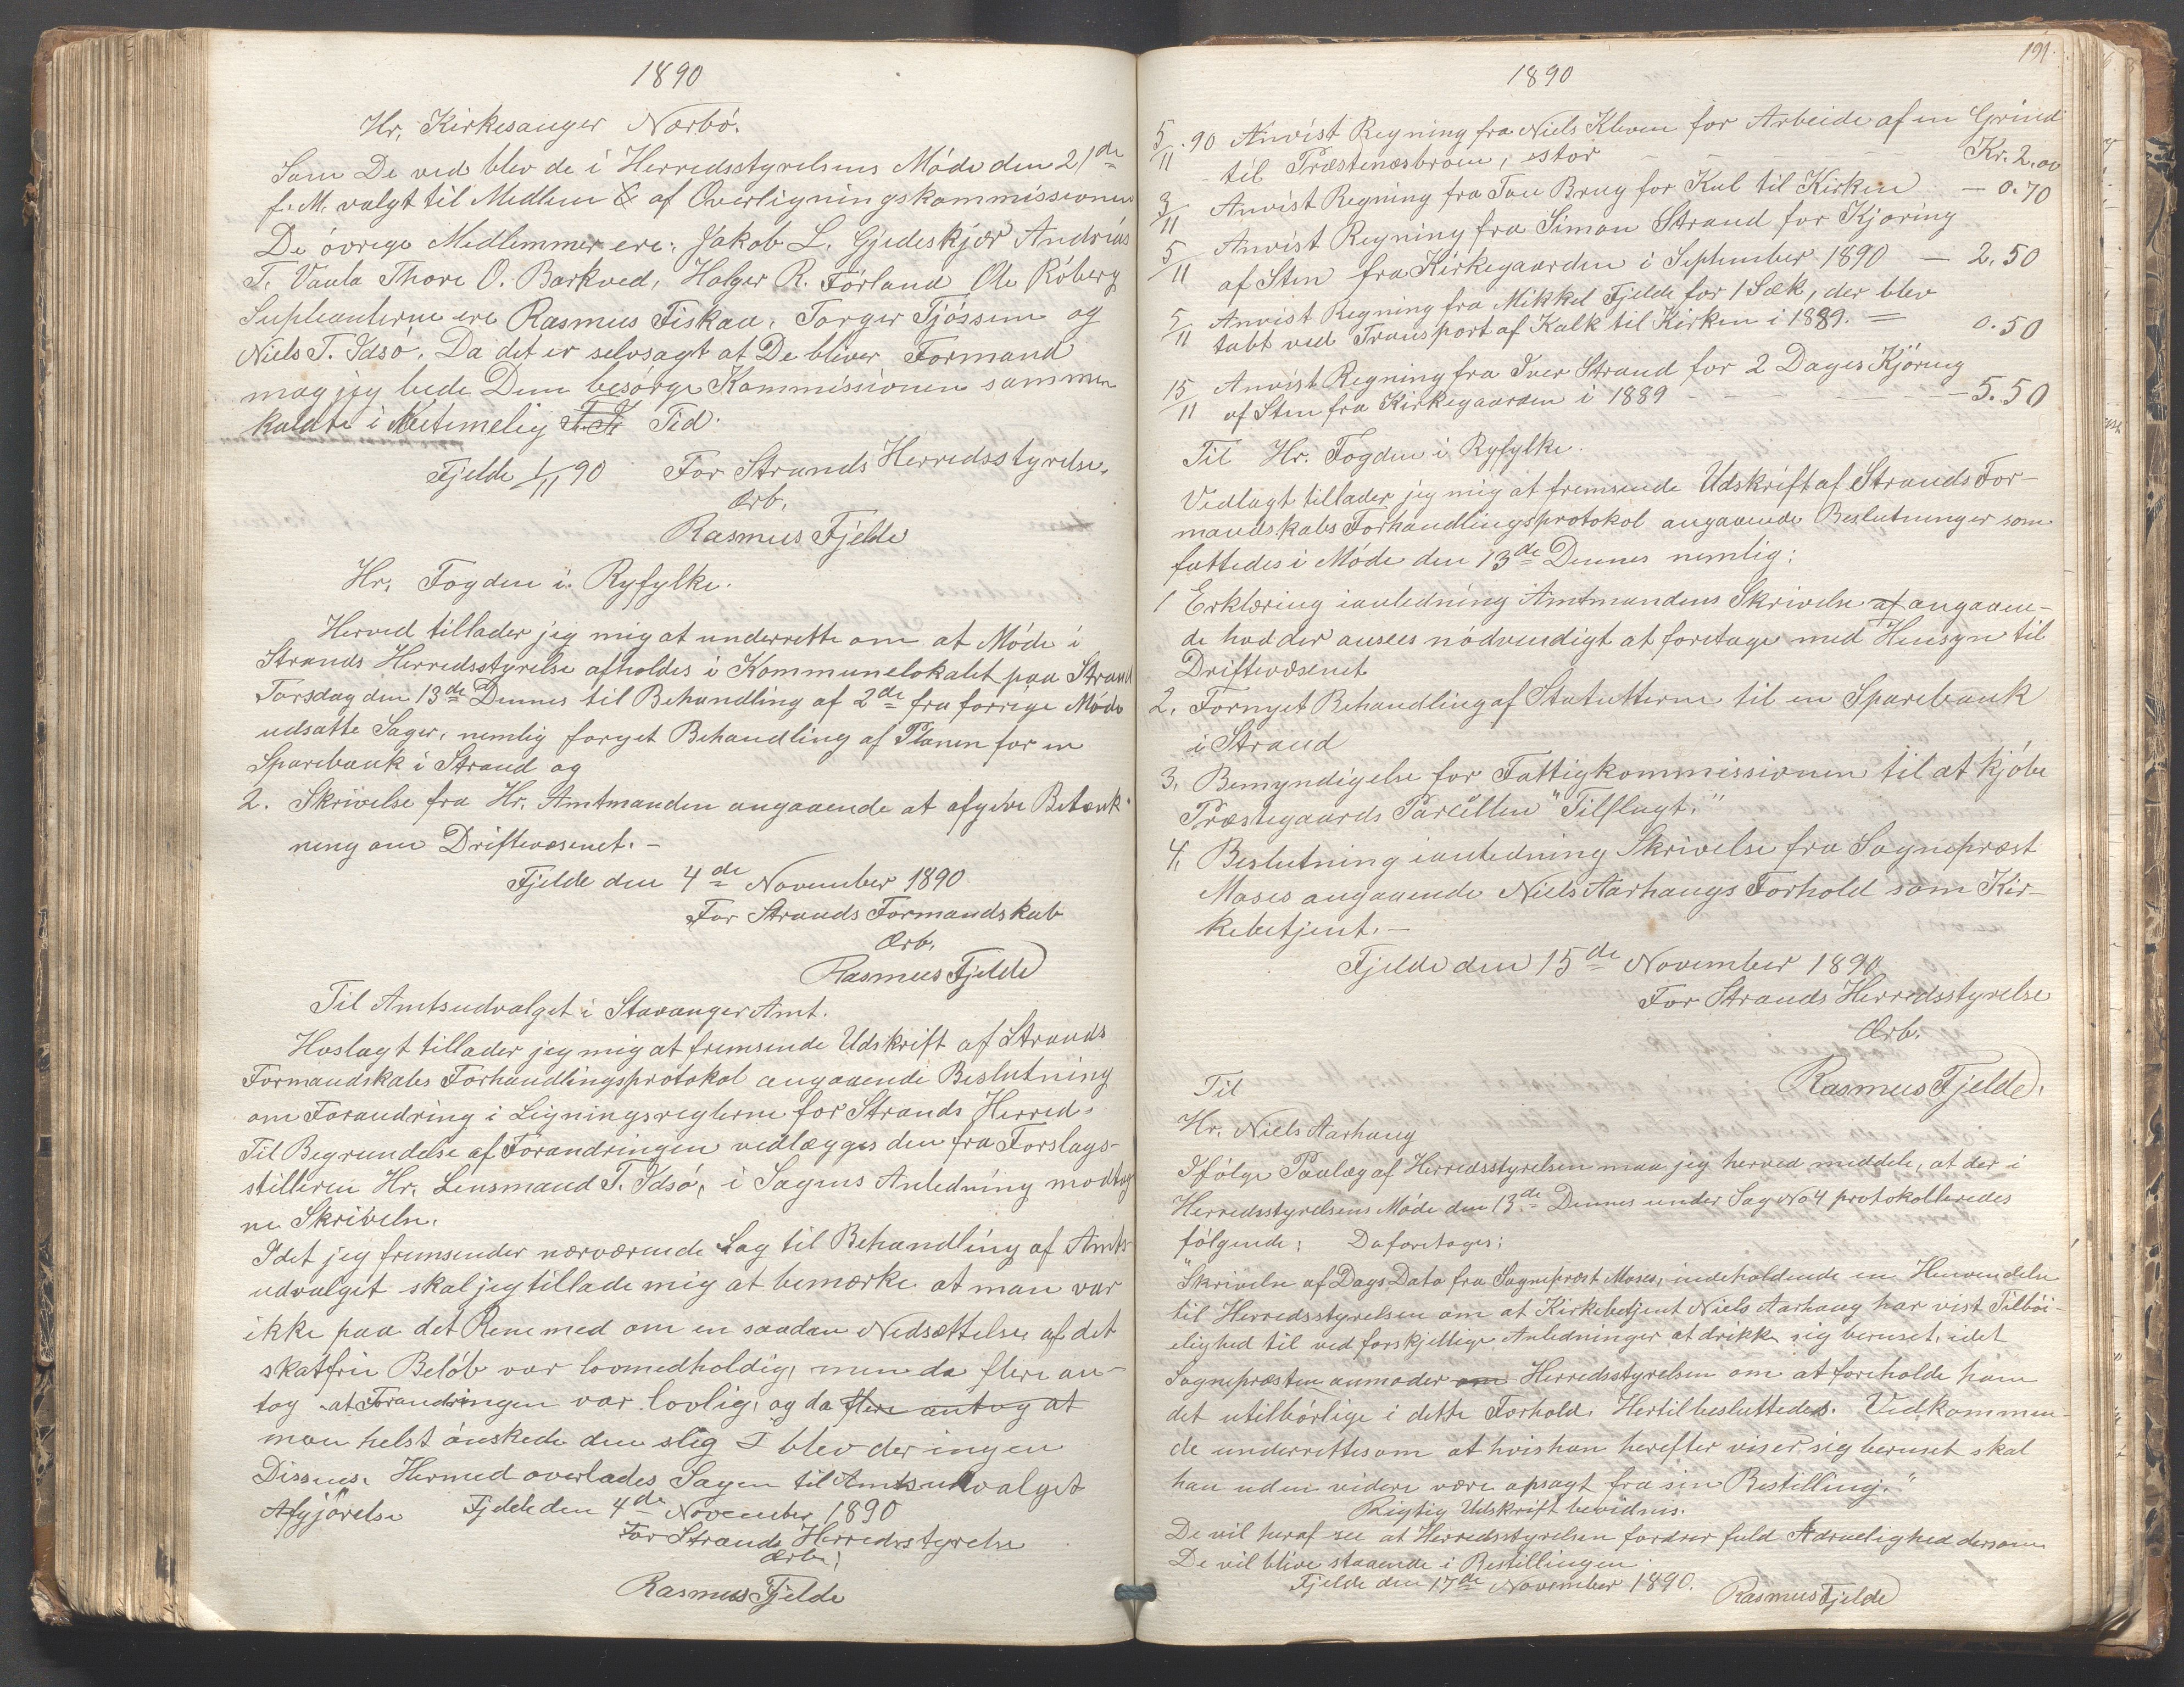 1890
Hr. Kirkesanger Nærbö.
Som De ved blev de i Herredsstyrelsens Möde den 21de
f. M. valgt til Medlem af Overligningskommissionen
De övrige Medlemmer ere: Jakob L. Gjedeskjær Andreas
T. Vaula Thore O. Barkved, Holger R. Förland Ole Röberg
Supleanterne ere Rasmus Fiskaa, Torger Tjössem og
Niels T. Idsö. Da det er selvsagt at De bliver Formand
maa jeg bede Dem besörge Kommissionen sammen
kaldte i betimelig Tid.
Fjelde 1/11 90 For Strands Herredsstyrelse.
Ærb.
Rasmus Fjelde
Hr. Fogden i Ryfylke.
Herved tillader jeg mig at underrette om at Möde i
Strands Herredsstyrelse afholdes i Kommunelokalet paa Strand
Torsdag den 13de Dennes til Behandling af 2de fra forrige Möde
udsatte Sager, nemlig fornyet Behandling af Planen for en
Sparebank i Strand og
2. Skrivelse fra Hr. Amtmanden angaaende at afgive Betænk-
ning om Driftevæsenet. -
Fjelde den 4de November 1890
For Strands Formandskab
Ærb.
Rasmus Fjelde
Til Amtsudvalget i Stavanger Amt.
Hoslagt tillader jeg mig at fremsende Udskrift af Strands
Formandskabs Forhandlingsprotokol angaaende Beslutning
om Forandring i Ligningsreglerne for Strands Herred.
Til Begrundelse af Forandringen vedlægges den fra Forslags-
stilleren Hr. Lensmand T. Idsö, i Sagens Anledning modtag
ne Skrivelse.
Idet jeg fremsender nærværende Sag til Behandling af Amts-
udvalget skal jeg tillade mig at bemærke at man var
ikke paa det Rene med om en saadan Nedsættelse af det
skatfrie Belöb var lovmedholdig, men da flere an-
tog at Forandringen var lovlig, og da flere antog at
man helst önskede den slig blev der ingen
Dissens. Hermed overlades Sagen til Amtsudvalget
Afgjörelse Fjelde den 4de November 1890
For Strands Herredsstyrelse
Ærb.
Rasmus Fjelde
191.
1890
5/11.90 Anvist Regning fra Niels Kleven for Arbeide af en Grind
til Præstenæsbroen, stor - - - Kr. 2.00
3/11 Anvist Regning fra Tau Brug for Kul til Kirken - 0.70
5/11 Anvist Regning fra Simon Strand for Kjöring
af Sten fra Kirkegaarden i September 1890 - 2.50
5/11 Anvist Regning fra Mikkel Fjelde for 1 Sæk, der blev
tabt ved Transport af Kalk til Kirken i 1889. = 0.50
15/11 Anvist Regning fra Iver Strand for 2 Dages Kjöring
af Sten fra Kirkegaarden i 1889 - - - - 5.50
Til Hr. Fogden i Ryfylke.
Vedlagt tillader jeg mig at fremsende Udskrift af Strands For-
mandskabs Forhandlingsprotokol angaaende Beslutninger som
fattedes i Möde den 13de Dennes nemlig:
1 Erklæring ianledning Amtmandens Skrivelse af angaaen-
de hvad der ansees nödvendigt at foretage med Hensyn til
Driftevæsenet
2. Fornyet Behandling af Statutterne til en Sparebank
i Strand
3. Bemyndigelse for Fattigkommissionen til at kjöbe
Præstegaards Parcellen "Tilflugt."
4. Beslutning ianledning Skrivelse fra Sognepræst
Moses angaaende Niels Aarhaugs Forhold som Kir-
kebetjent. -
Fjelde den 15de November 1890
For Strands Herredsstyrelse
Ærb.
Rasmus Fjelde.
Til
Hr. Niels Aarhaug
Ifölge Paalæg af Herredsstyrelsen maa jeg herved meddele, at der i
Herredsstyrelsens Möde den 13de Dennes under Sag No 4 protokolleredes
fölgende: Da foretoges:
"Skrivelse af Dags Dato fra Sognepræst Moses, indeholdende en Henvendelse
til Herredsstyrelsen om at Kirkebetjent Niels Aarhaug har vist Tilböi-
elighed til ved forskjellige Anledninger at drikke sig beruset, idet
Sognepræsten anmoder om Herredsstyrelsen om at foreholde ham
det utilbörlige i dette Forhold. Hertil besluttedes. Vedkommen-
de underrettes om at hvis han herefter viser sig beruset skal
han uden videre være opsagt fra sin Bestilling."
Rigtig Udskrift bevidnes.
De vil heraf see at Herredsstyrelsen fordrer fuld Ædruelighed dersom
De vil blive staaende i Bestillingen.
Fjelde den 17de November 1890. Rasmus Fjelde